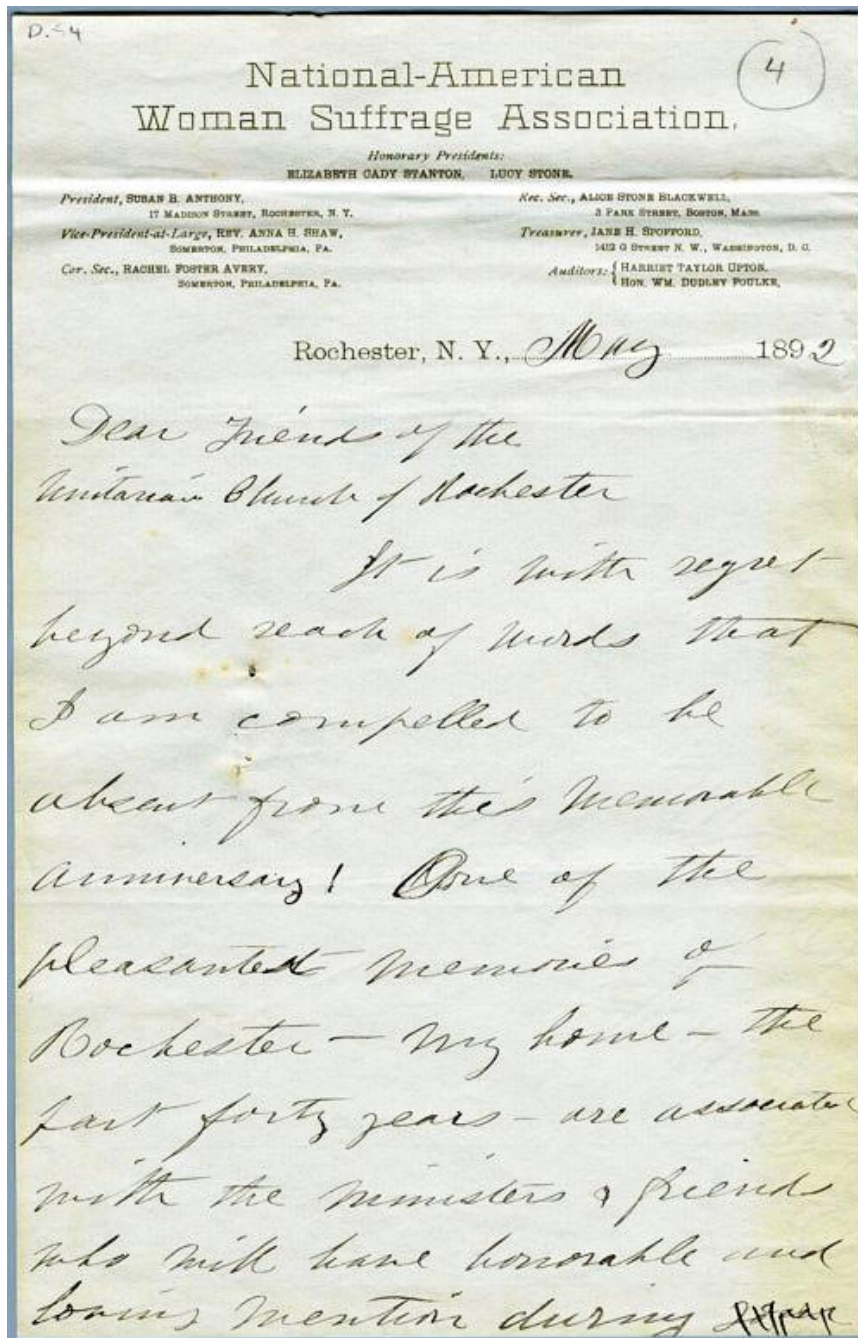 D.54
4
National-American
Woman Suffrage Association.
Honorary Presidents:
ELIZABETH CADY STANTON, LUCY STONE.
President, SUSAN B. ANTHONY,
17 MADISON STREET, ROCHESTER, N. Y.
Vice-President-at-Large, REV. ANNA H. SHAW,
SOMERTON, PHILADELPHIA, PA.
Cor. Sec., RACHEL FOSTER AVERY,
SOMERTON, PHILADELPHIA, PA.
Rec. Sec., ALICE STONE BLACKWELL,
3 PARK STREET, BOSTON, MASS.
Treasurer, JANE H. SPOFFORD,
1412 G STREET N. W., WASHINGTON, D. C.
Auditors: { HARRIET TAYLOR UPTON,
HON. WM. DUDLEY FOULKE,
Rochester, N. Y., May 1892
Dear Friends of the
Unitarian Church of Rochester
It is with regret
beyond reach of words that
I am compelled to be
absent from this memorable
anniversary! One of the
pleasantest memories of
Rochester – my home – the
past forty years – are associated
with the ministers & friends
who will have honorable and
loving mention during